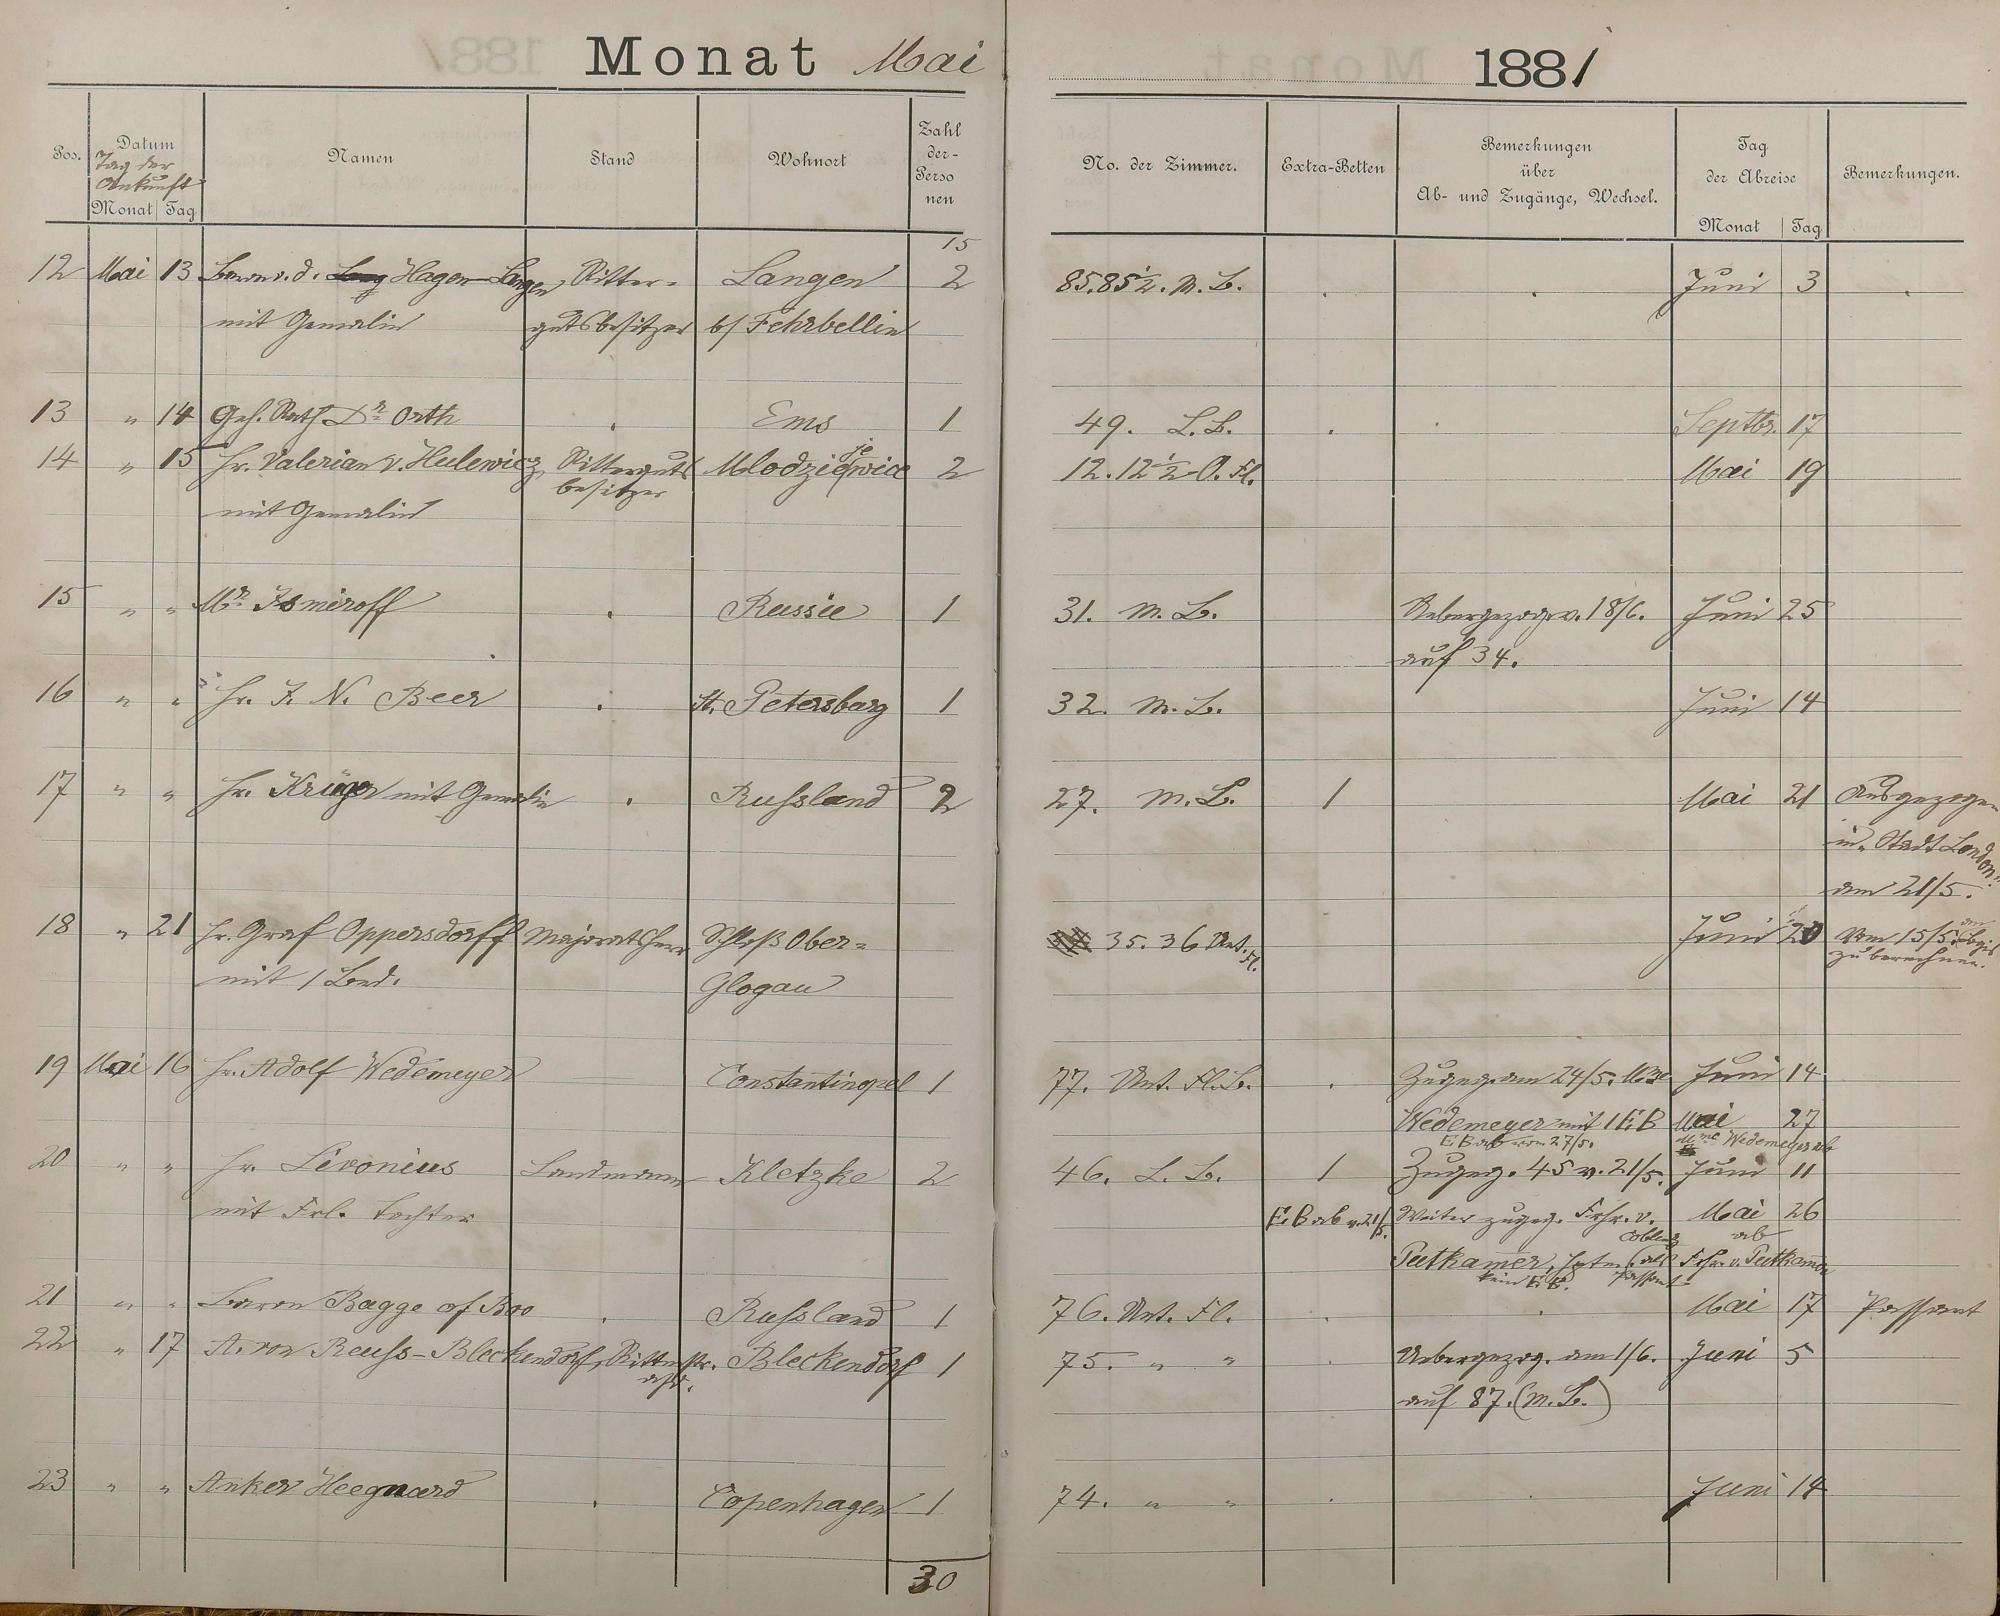 Monat Mai
1881
Pos.
Datum
Tag der
Ankunft
Monat Tag
Namen
Stand
Wohnort
Zahl
der-
Perso
nen
No. der Zimmer.
Extra-Betten
Bemerkungen
über
Ab- und Zugänge, Wechsel.
Tag
der Abreise
Monat Tag
Bemerkungen.
15
12 Mai 13 Baron v. d. Hagen-Langen, Ritter- Langen 2 85.85½. M. L. . . Juni 3 .
mit Gemalin gutsbesitzer b/ Fehrbellin
13 " 14 Geh. Rath Dr Orth . Ems 1 49. L. L. . . Septbr. 17
14 " 15 Hr. Valerian v. Hulewicz, Ritterguts Mlodziejewice 2 12.12½ O. Fl. Mai 19
besitzer
mit Gemalin
15 " " Mr. Ismiroff . Russie 1 31. M. L. Uebergezog. v. 18/6. Juni 25
auf 34.
16 " " Hr. J. N. Beer . St. Petersburg 1 32. M. L. Juni 14
17 " " Hr. Krüger mit Gemalin . Russland 2 27. M. L. 1 Mai 21 Ausgezogen
in "Stadt London"
am 21/5.
18 " 21 Hr. Graf Oppersdorff Majoratsherr Schloß Ober= 35. 36 Unt. Fl. Juni 20 Vom 15/5. an
zu berechnen.
mit 1 Bed. Glogau
19 Mai 16 Hr. Adolf Wedemeyer Constantinopel 1 77. Unt. Fl. L. . Zugeg. am 24/5. Mme Juni 14
Wedemeyer mit 1 E B Mai 27
E B ab vom 27/5. Mme Wedemeyer ab
20 " " Hr. Livonius Landmann Kletzke 2 46. L. L. 1 Zugeg. 45 v. 21/5. Juni 11
mit Frl. Tochter E. B ab v. 21/5. Weiter zugeg. Frhr. v. Mai 26
Coblenz ab
Puttkamer, Hptm. (als Frhr. v. Puttkamer
kein E. B. Passant
21 " " Baron Bagge of Boo . Russland 1 76. Unt. Fl. . . Mai 17 Passant
22 " 17 A. von Reuss-Bleckendorf, Rittmstr. Bleckendorf 1 75. " " . Uebergezog. am 1/6. Juni 5
auf 87. (M. L.)
23 " " Anker Heegaard . Copenhagen 1 74. " " . . Juni 14
30